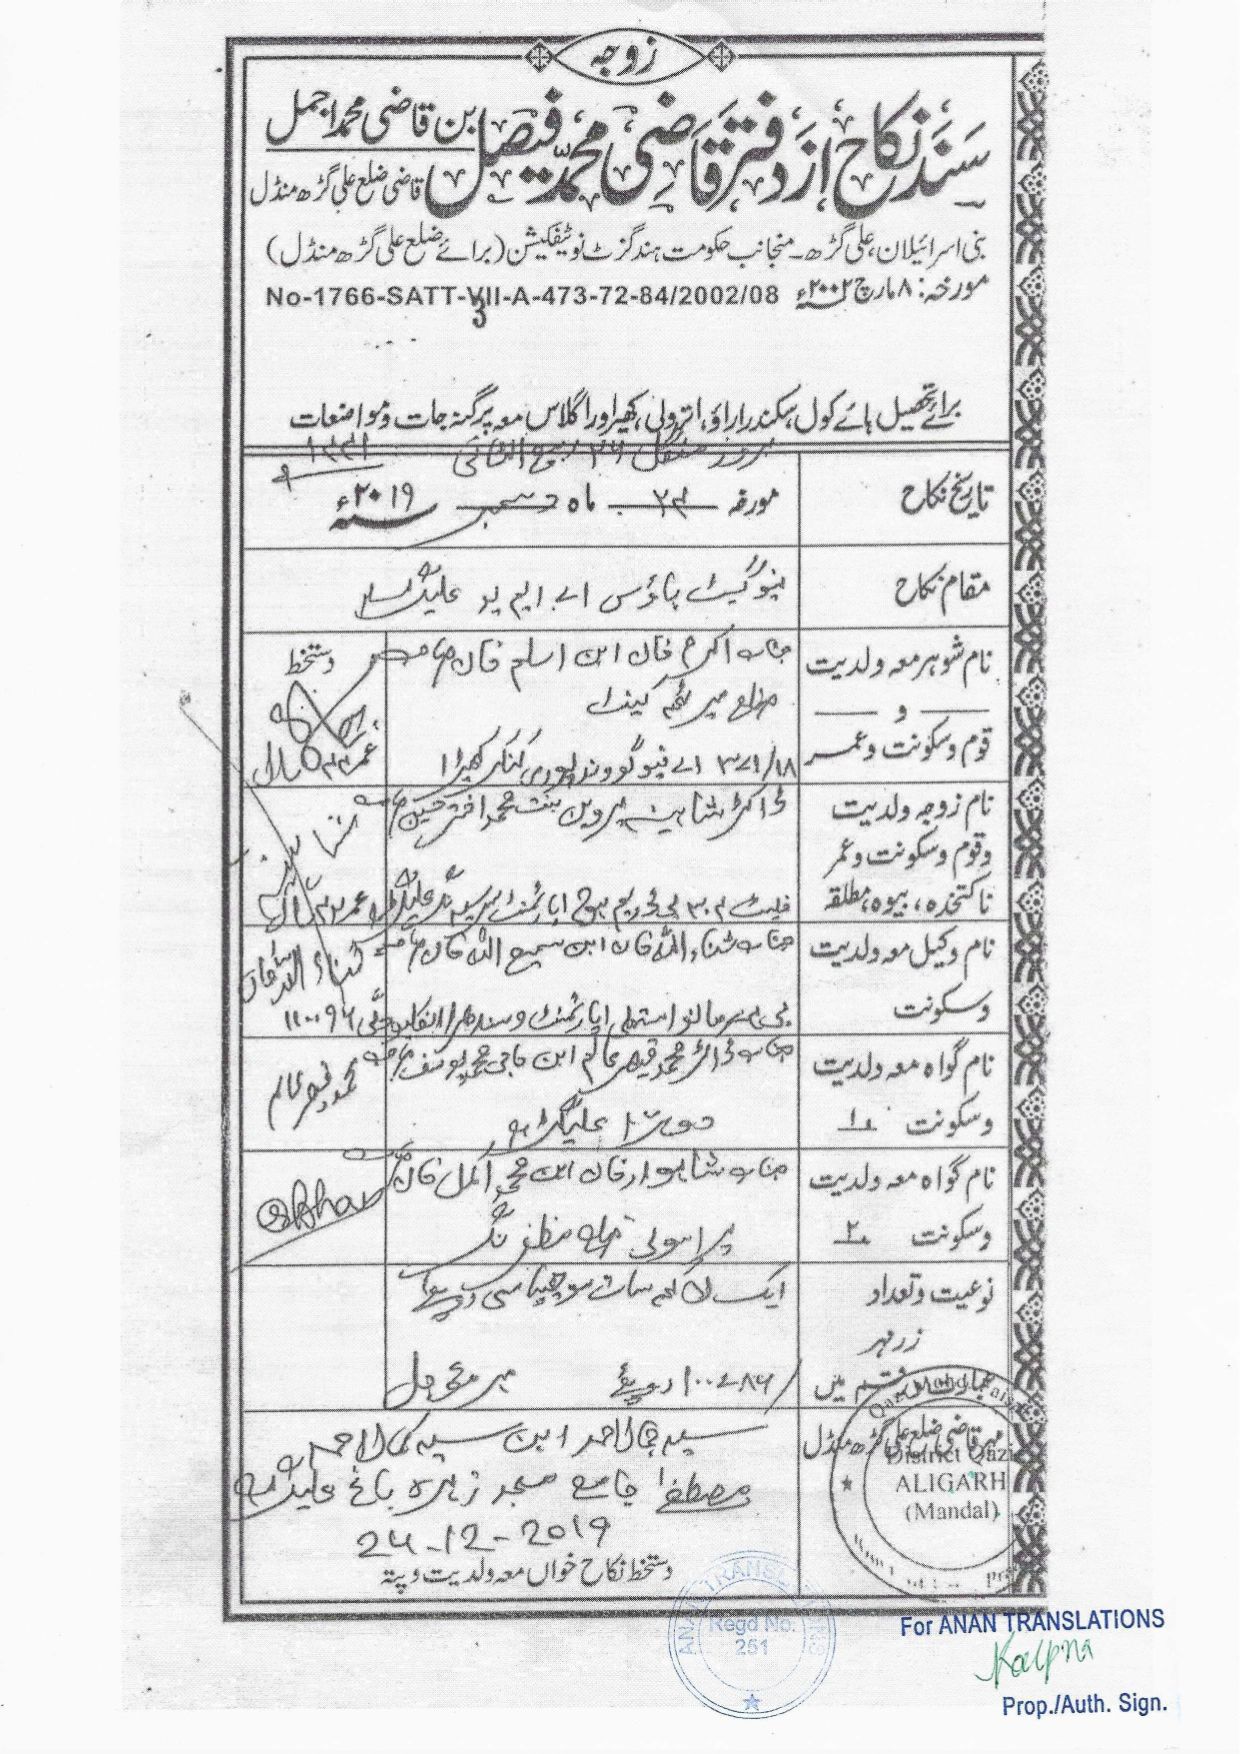 زوجہ
سند نکاح از دفتر قاضی محمد فیصل بن قاضی محمد اجمل
قاضی ضلع علی گڑھ منڈل
بنی اسرائیلان، علی گڑھ۔ منجانب حکومت ہند گزٹ نوٹیفکیشن (برائے ضلع علی گڑھ منڈل)
مورخہ: ۸ مارچ ۲۰۰۲ء No-1766-SATT-VII-A-473-72-84/2002/08
3
برائے تحصیل ہائے کول، سکندرا راؤ، اترولی، کھیر اور اگلاس معہ پرگنہ جات و مواضعات
بروز منگل ۲۶ ربیع الثانی ۱۴۴۱ھ
تاریخ نکاح
مورخہ ۲۴ ماہ دسمبر ۲۰۱۹ء
مقام نکاح
نیو گیسٹ ہاؤس اے۔ ایم یو علیگڑھ
نام شوہر معہ ولدیت
و
قوم وسکونت وعمر
جناب اکرم خان ابن اسلم خان صاحب
ضلع میرٹھ کینٹ
۱۸/۳۴۱ اے نیو گووندپوری کنکر کھیڑا
دستخط
عمر ۴۵ سال
نام زوجہ ولدیت
وقوم وسکونت وعمر
ناکتخدہ، بیوہ، مطلقہ
ڈاکٹر شاہینہ پروین بنت محمد اختر حسین صاحب
فلیٹ ۳۰۴ بی
نام وکیل معہ ولدیت
وسکونت
جناب ثناء اللہ خان ابن سمیع اللہ خان صاحب
اپارٹمنٹ وسندھرا انکلیو دہلی ۱۱۰۰۹۶
ثناء اللہ خان
نام گواہ معہ ولدیت
وسکونت ۱
جناب ڈاکٹر محمد قیصر عالم ابن حاجی محمد یوسف صاحب
دودھ پور علیگڑھ
محمد قیصر عالم
نام گواہ معہ ولدیت
وسکونت ۲
جناب شاہنواز خان ابن محمد اکمل خان صاحب
ضلع مظفر نگر
نوعیت وتعداد
زر مہر
عبارت و رقم میں
ایک لاکھ سات سو چھیاسی روپئے
۱۰۰۷۸۶/ روپئے مہر معجل
مہر قاضی ضلع علی گڑھ منڈل
Qazi Mohd Faisal
District Qazi
ALIGARH
(Mandal)
سید جمال احمد ابن سید کمال احمد
مصطفیٰ جامع مسجد زہرہ باغ علیگڑھ
24-12-2019
دستخط نکاح خواں معہ ولدیت و پتہ
ANAN TRANSLATIONS
Regd No.
251
For ANAN TRANSLATIONS
Kalpna
Prop./Auth. Sign.